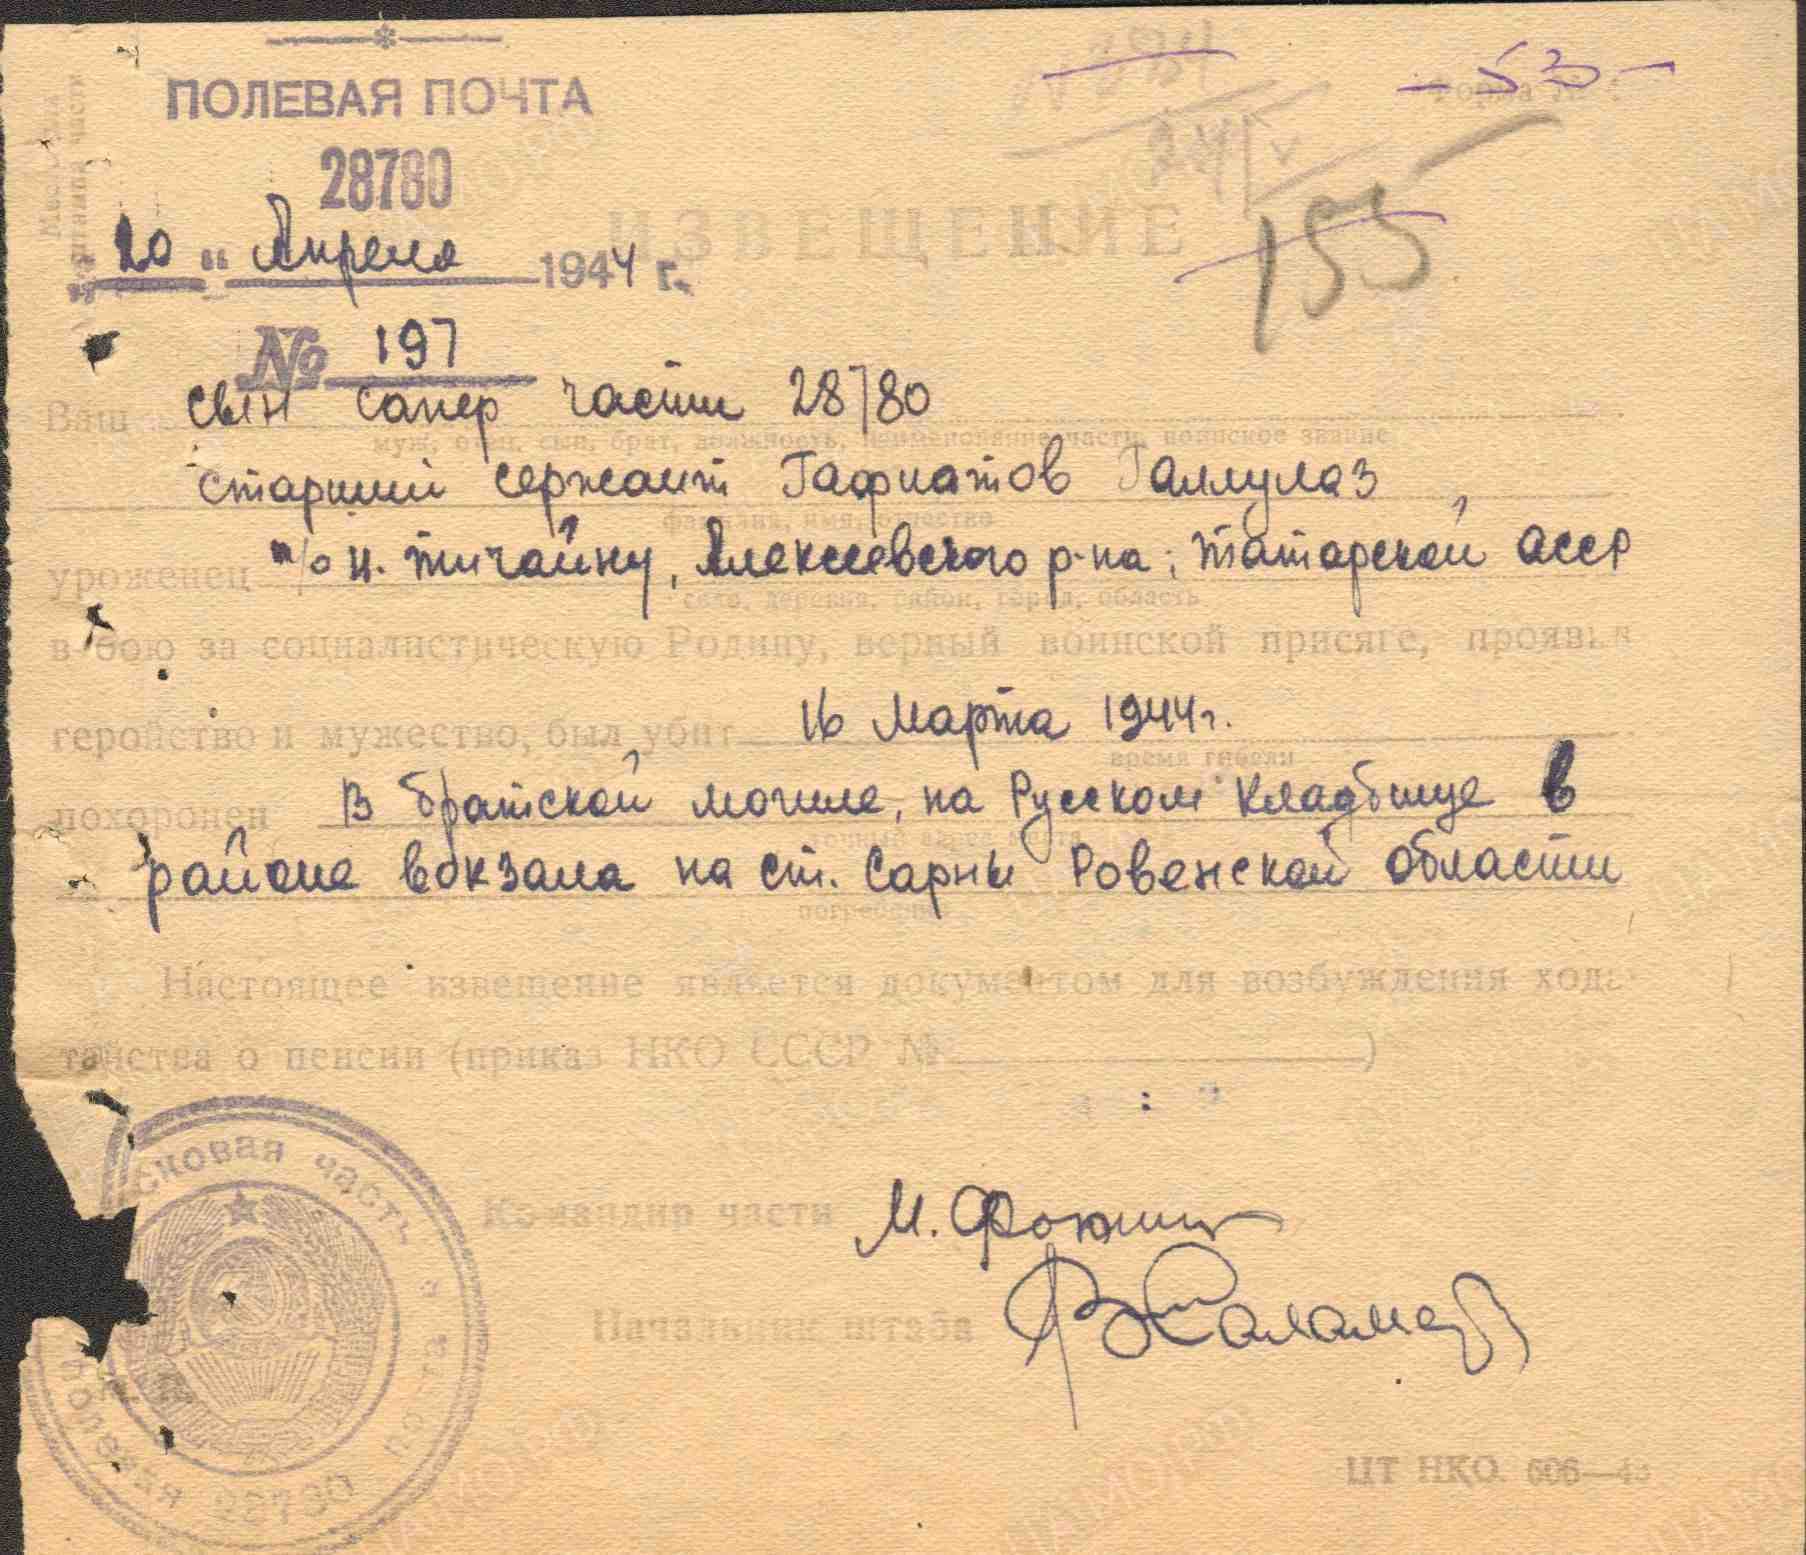 ПОЛЕВАЯ ПОЧТА
28780
20 " Апреля 1944 г.
№ 197
- 53 -
155
ИЗВЕЩЕНИЕ
Ваш сын сапер части 28780
муж, отец, сын, брат, должность, наименование части, воинское звание
старший сержант Гафиатов Галлулаз
фамилия, имя, отчество
уроженец п/о н. тигайну, Алексеевского р-на; татарской асср
село, деревня, район, город, область
в бою за социалистическую Родину, верный воинской присяге, проявил
геройство и мужество, был убит 16 марта 1944 г.
время гибели
похоронен В братской могиле, на Русском кладбище в
точный адрес места
районе вокзала на ст. Сарны Ровенской области
погребения
Настоящее извещение является документом для возбуждения хода-
тайства о пенсии (приказ НКО СССР № )
Командир части М. Фокин
Начальник штаба
сковая часть
полевая почта 28780
ЦТ НКО. 606—43